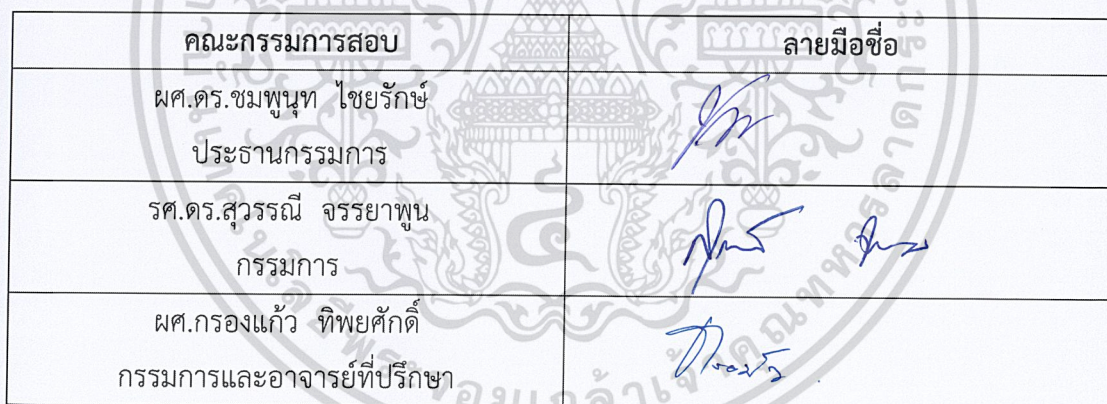 คณะกรรมการสอบ ลายมือชื่อ
ผศ.ดร.ชมพูนุท ไชยรักษ์
ประธานกรรมการ
รศ.ดร.สุวรรณี จรรยาพูน
กรรมการ
ผศ.กรองแก้ว ทิพยศักดิ์
กรรมการและอาจารย์ที่ปรึกษา